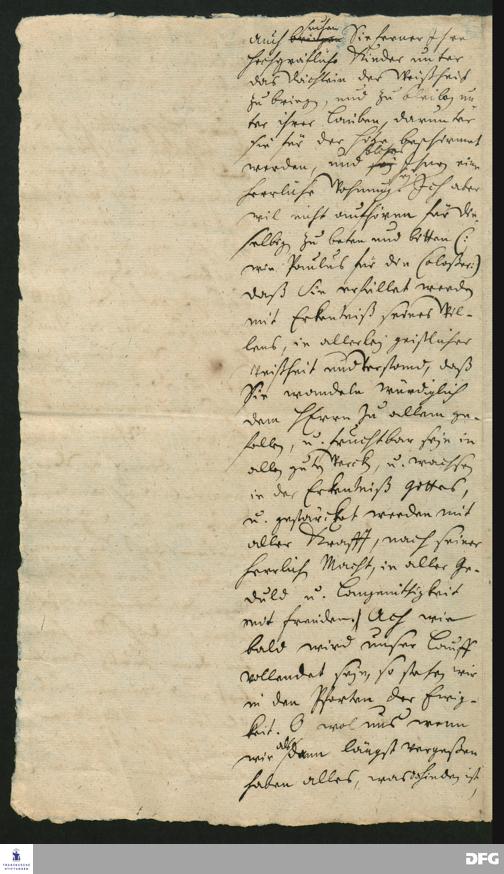 auch suchen Sie ferner Ihre
hochgräfliche Kinder unter
das Dächlein der Weißheit
zu bringen, und zu bleiben un
ter ihrer Lauben, darunter
sie für der Hitze beschirmet
werden, und solches Ihnen eine
herrliche Wohnung sey. Ich aber
wil nicht aufhören für die-
selbige zu beten und bitten (:
wie Paulus für die Coloßer:)
daß Sie erfüllet werden
mit Erkentniß seines Wil-
lens, in allerley geistlicher
Weißheit und Verstand, daß
Sie wandeln würdiglich
dem HErrn zu allem ge-
fallen, u. fruchtbar seyn in
allen guten Wercken, u. wachsen
in der Erkentniß Gottes,
u. gestärcket werden mit
aller Krafft, nach seiner
herrlichen Macht, in aller Ge-
duld u. Langmüthigkeit
mit freuden. Ach wie
bald wird unser Lauff
vollendet seyn, so stehen wir
in den Pforten der Ewig-
keit. O wol uns wenn
wir alsdann längst vergeßen
haben alles, was dahinden ist,
FRANCKESCHE
STIFTUNGEN
DFG